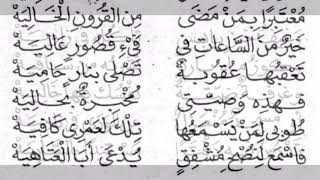 مُعْتَبِرًا بِمَنْ مَضَى مِنَ الْقُرُونِ الْخَالِيَهْ
خَيْرٌ مِنَ السَّاعَاتِ فِي فَيْءِ قُصُورٍ عَالِيَهْ
تَعْقُبُهَا عُقُوبَةٌ تَصْلَى بِنَارٍ حَامِيَهْ
فَهَذِهِ وَصِيَّتِي مُخْبِرَةٌ بِحَالِيَهْ
طُوبَى لِمَنْ يَسْمَعُهَا تِلْكَ لَعَمْرِي كَافِيَهْ
فَاسْمَعْ لِنُصْحِ مُشْفِقٍ يُدْعَى أَبَا الْعَتَاهِيَهْ